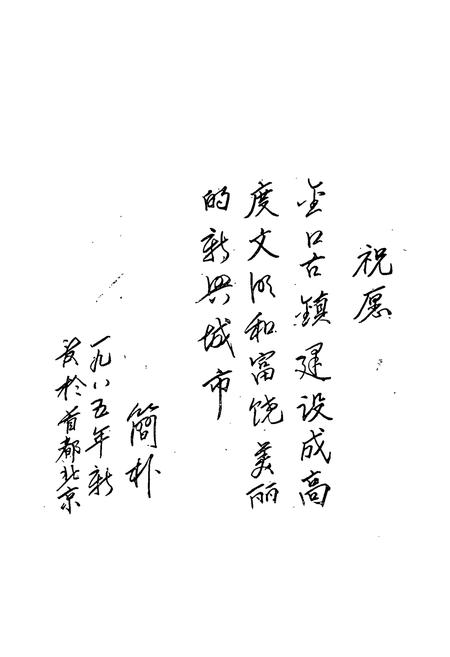 祝愿
金口古鎮建设成高
度文明和富饶美丽
的新兴城市
簡朴
一九八五年新
春於首都北京